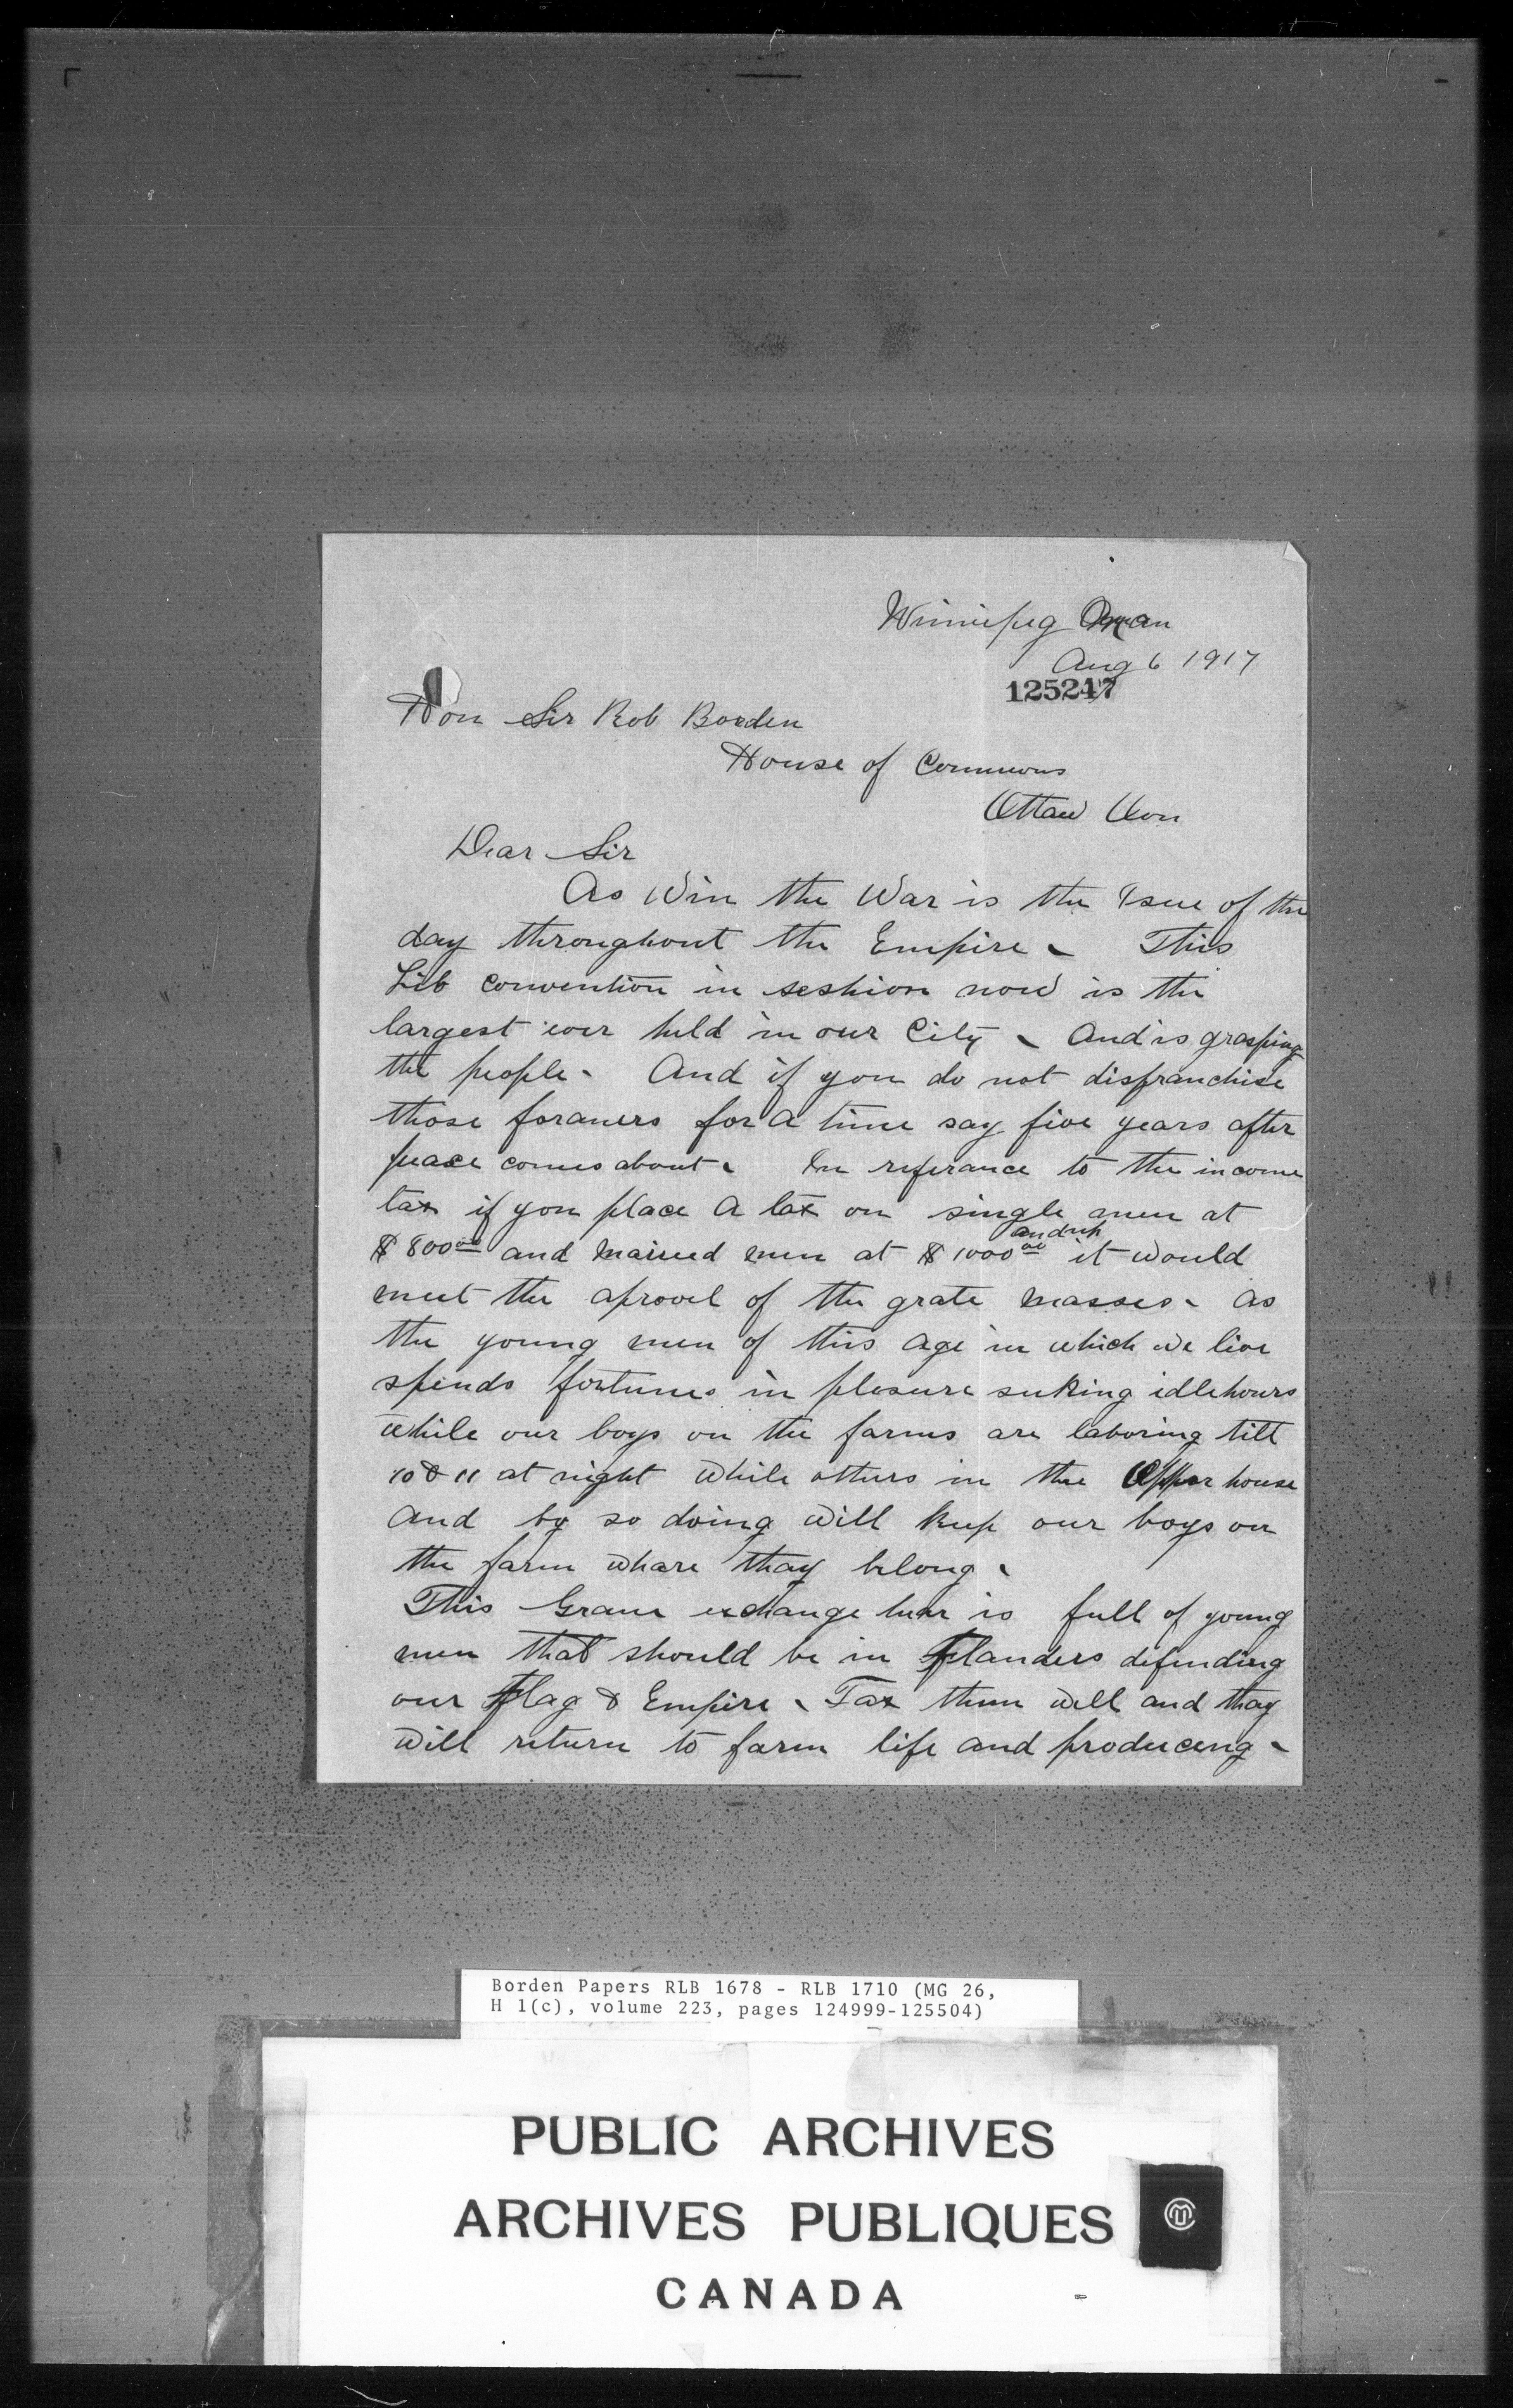 Winnipeg Man
Aug 6 1917
125247
Hon Sir Rob Borden
House of Commons
Ottaw Oon
Dear Sir
As Win the War is the Isue of the
day throughout the Empire - This
Lib convention in seshion now is the
largest ever held in our City - And is grasping
the people - And if you do not disfranchise
those foraners for a time say five years after
peace comes about - In referance to the income
tax if you place a tax on single men at
$800.00 and maired men at $1000.00 and up it would
meet the aprovel of the grate masses - as
the young men of this age in which we live
spends fortunes in plesure seeking idle hours
while our boys on the farms are laboring till
10 & 11 at night while others in the Opper house
and by so doing will keep our boys on
the farm whare thay belong -
This Grane exchange hear is full of young
men that should be in Flanders defending
our Flag & Empire - Tax them well and thay
will return to farm life and produceng -
Borden Papers RLB 1678 - RLB 1710 (MG 26,
H 1(c), volume 223, pages 124999-125504)
PUBLIC ARCHIVES
ARCHIVES PUBLIQUES
CANADA